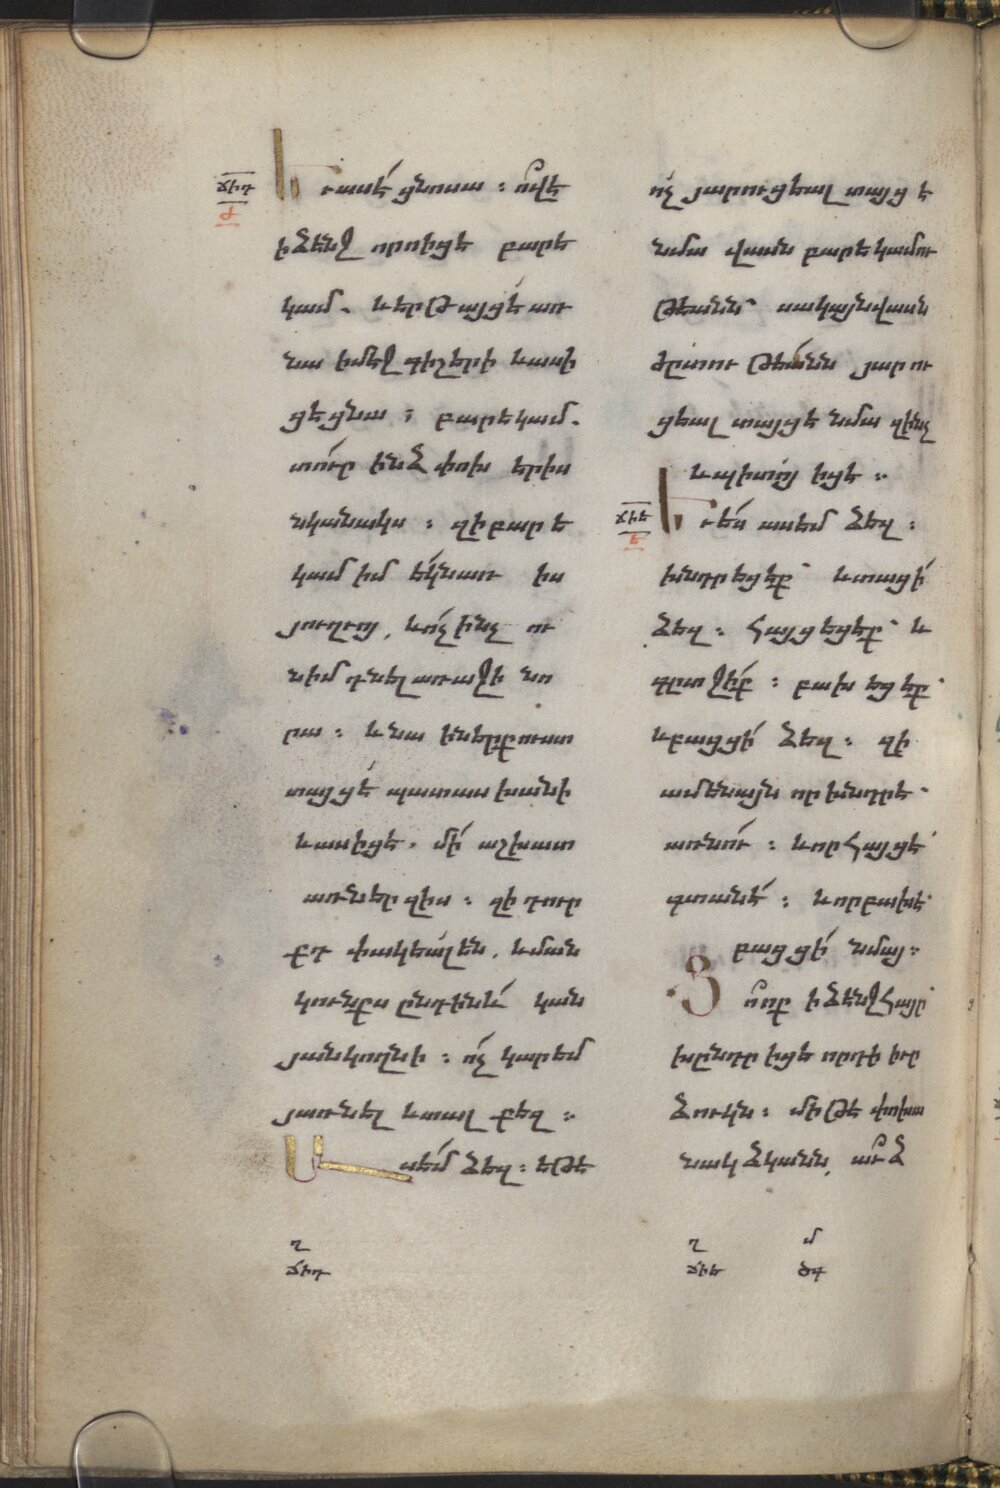 ՃԻԴ
Ժ
Եւ ասէ ցնոսա ։ ո՞վ է
ի ձէնջ որոյ իցէ բարե
կամ. և երթայցէ առ
նա ի մէջ գիշերի և ասի
ցէ ցնա ։ բարեկամ.
տո՛ւր ինձ փոխ երիս
նկանակս ։ զի բարե
կամ իմ եկն առ իս
յուղւոյ, և ո՛չ ինչ ու
նիմ դնել առաջի նո
րա ։ և նա ի ներքուստ
տայցէ պատասխանի
և ասիցէ. մի՛ աշխատ
առներ զիս ։ զի դուր
քդ փակեալ են. և ման
կունքս ընդ ինև կան
յանկողնի ։ ո՛չ կարեմ
յառնել և տալ քեզ ։
Ասեմ ձեզ ։ եթէ
Ղ
ՃԻԴ
ո՛չ յարուցեալ տայցէ
նմա վասն բարեկամու
թեանն՝ սակայն վասն
ժըտութեանն յարու
ցեալ տայցէ նմա զինչ
և պիտոյ իցէ ։
ՃԻԵ
Ե
Եւ ես ասեմ ձեզ ։
խնդրեցէք՝ և տացի՛
ձեզ ։ հայցեցէք՝ և
գըտջիք ։ բախեցէք՝
և բացցի՛ ձեզ ։ զի
ամենայն որ խնդրէ՝
առնու ։ և որ հայցէ՝
գտանէ ։ և որ բախէ՝
բացցի՛ նմայ ։
Ցո՞ ոք ի ձէնջ հայր՝
խընդրիցէ որդի իւր
ձուկն ։ մի թէ փոխա
նակ ձկանն, աւձ
Ղ
ՃԻԵ
Մ
ԾԳ